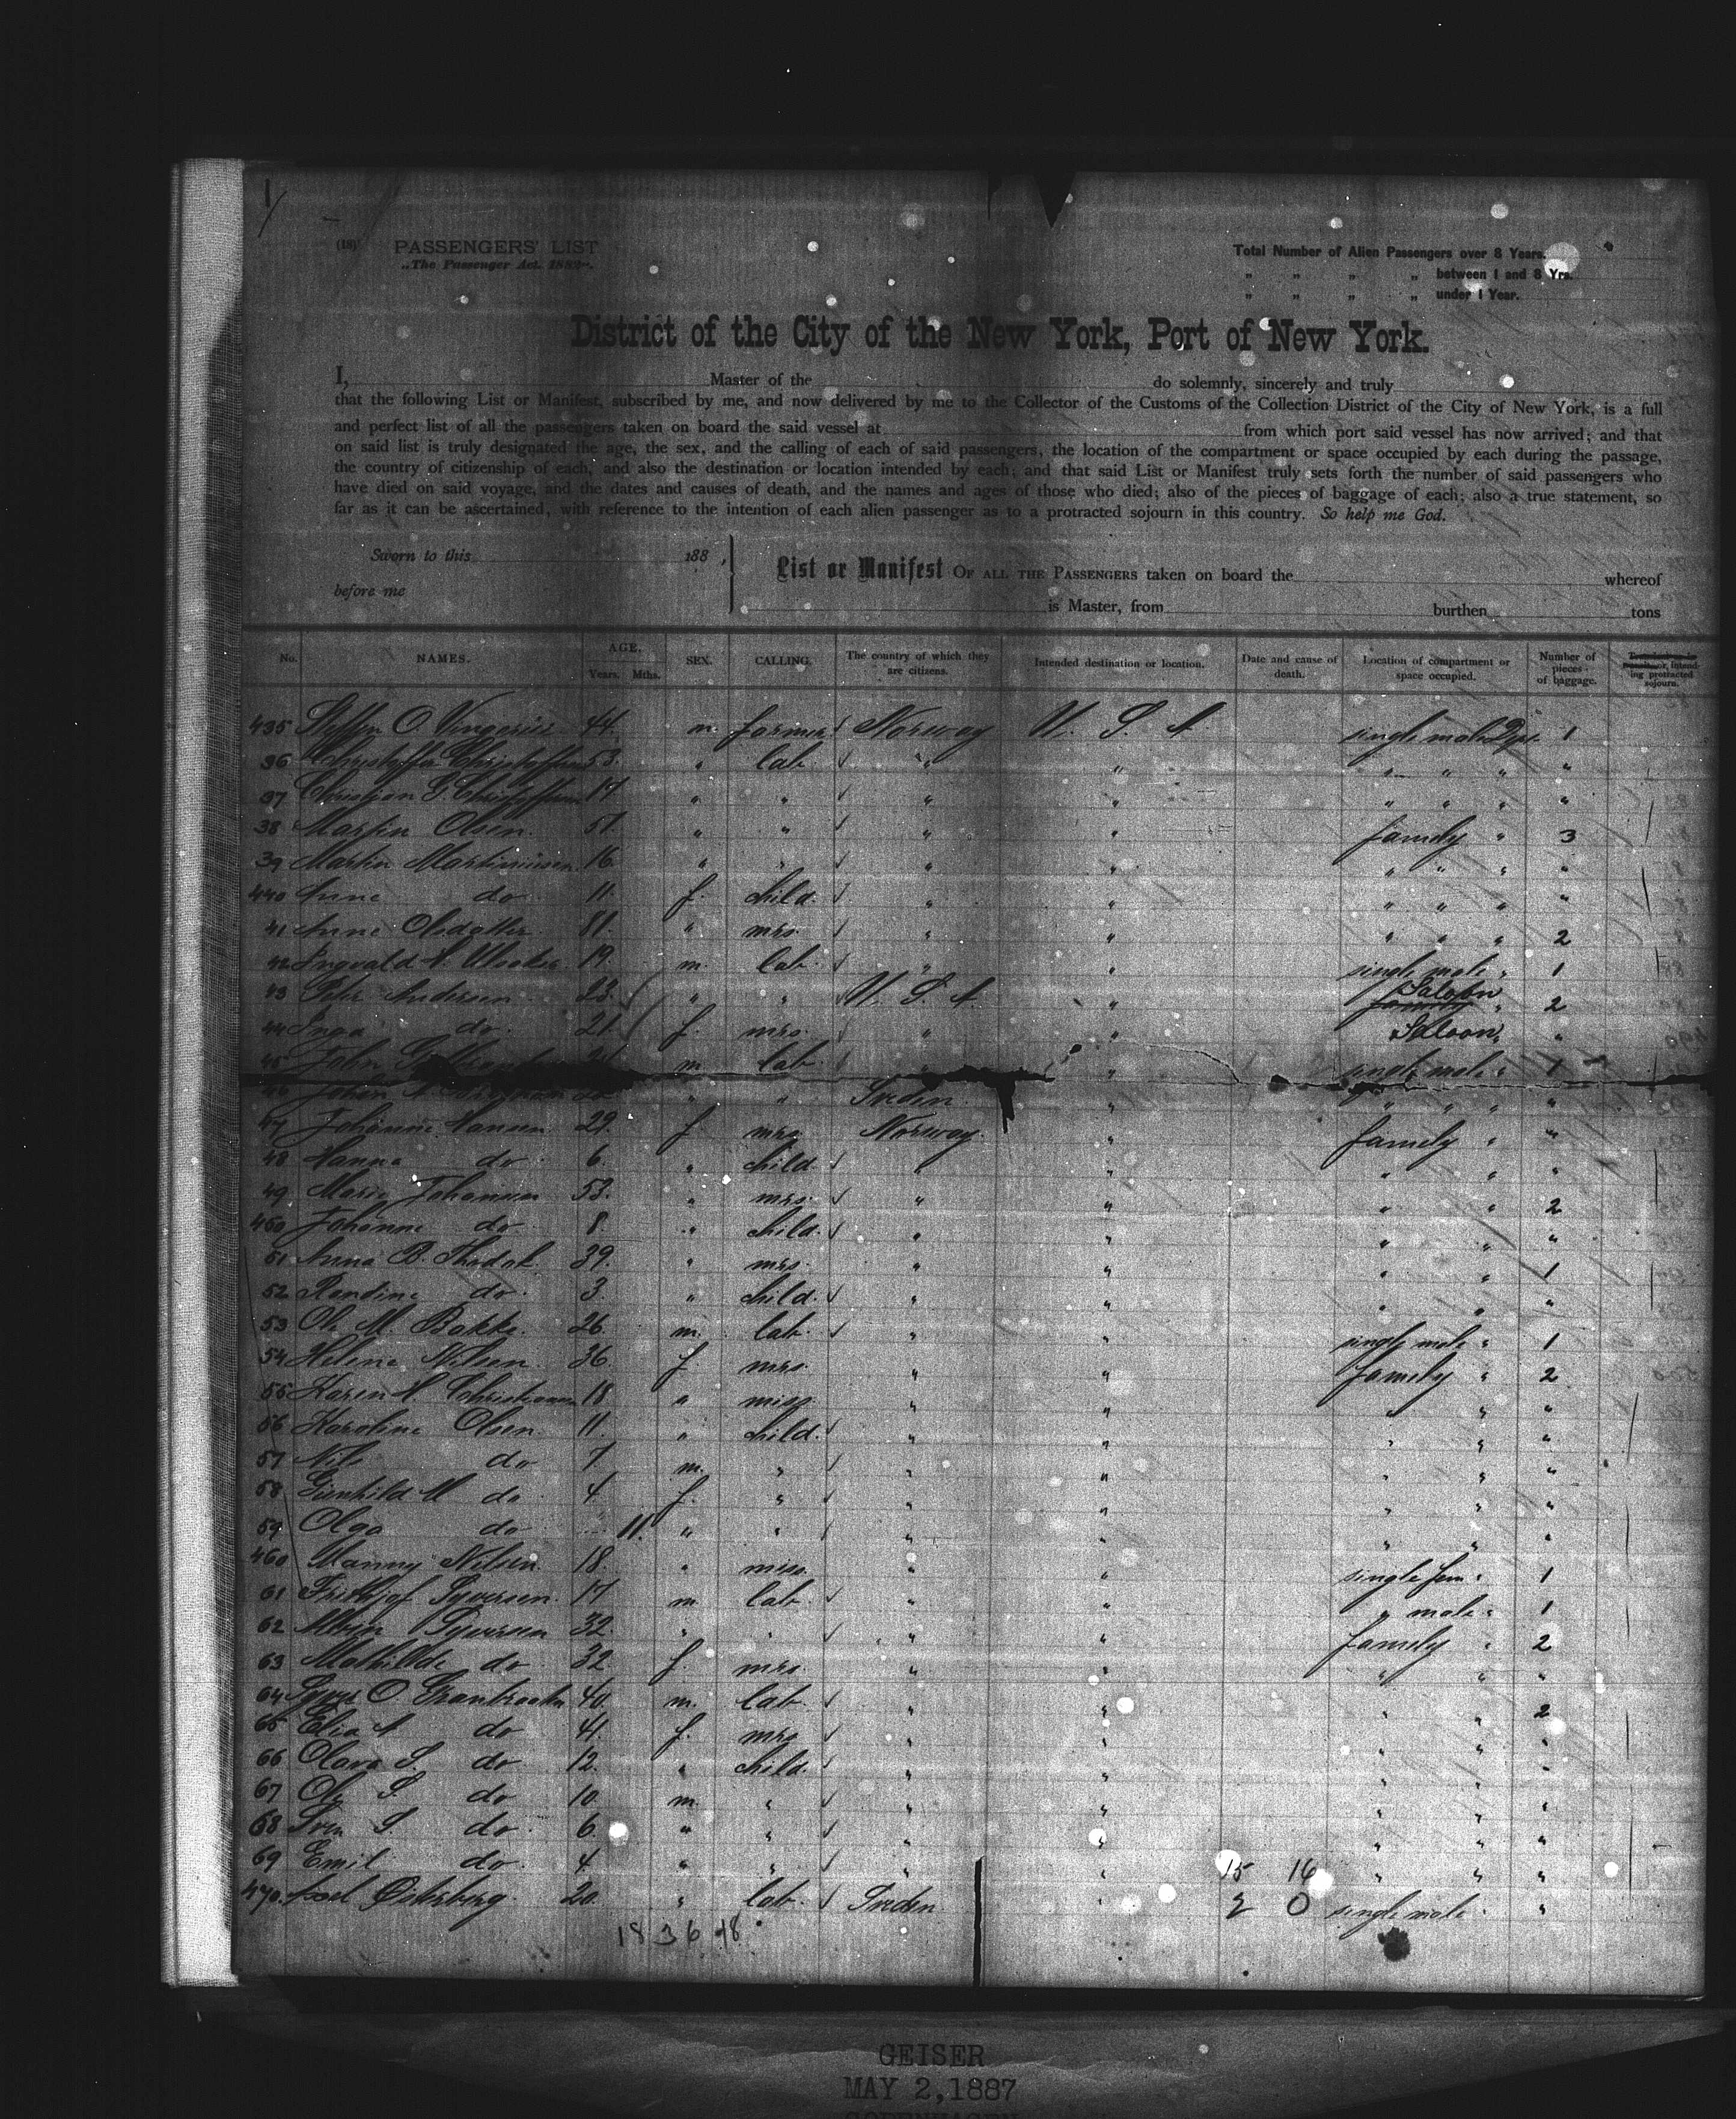 1
(18) PASSENGERS' LIST
„The Passenger Act. 1882".
Total Number of Alien Passengers over 8 Years.
„ „ „ „ between 1 and 8 Yrs.
„ „ „ „ under 1 Year.
District of the City of the New York, Port of New York.
I, Master of the do solemnly, sincerely and truly
that the following List or Manifest, subscribed by me, and now delivered by me to the Collector of the Customs of the Collection District of the City of New York, is a full
and perfect list of all the passengers taken on board the said vessel at from which port said vessel has now arrived; and that
on said list is truly designated the age, the sex, and the calling of each of said passengers, the location of the compartment or space occupied by each during the passage,
the country of citizenship of each, and also the destination or location intended by each; and that said List or Manifest truly sets forth the number of said passengers who
have died on said voyage, and the dates and causes of death, and the names and ages of those who died; also of the pieces of baggage of each; also a true statement, so
far as it can be ascertained, with reference to the intention of each alien passenger as to a protracted sojourn in this country. So help me God.
Sworn to this 188 ,
before me
List or Manifest OF ALL THE PASSENGERS taken on board the whereof
is Master, from burthen tons
No. NAMES. AGE. Years. Mths. SEX. CALLING. The country of which they are citizens. Intended destination or location. Date and cause of death. Location of compartment or space occupied. Number of pieces of baggage. or, intending protracted sojourn.
435 O. 44. m. farmer Norway U. S. A. single male 1
36 53. " lab. " " " " " "
37 Christian G. 17. " " " " " " " "
38 Martin Olsen. 51. " " " " family " 3
39 Martin Martinissen. 16. " " " " " " " "
440 Anne do 11. f. child. " " " " " "
41 Anne Olsdatter 81. " mrs. " " " " " 2
42 Ingvald 19. m. lab. " " single male " 1
43 Peter Andersen 23. " " U. S. A. " Saloon family " 2
44 Inga do. 21. f. mrs. " " Saloon "
45 John m. lab. " single male " 1
46 Johan " " Sveden " " " " "
47 Johanne Hansen 29. f. mrs. Norway. " family " "
48 Hanna do. 6. " child. " " " " "
49 Marie Johansen 53. " mrs. " " " " 2
450 Johanne do. 8. " child. " " " " "
51 Anna B. 39. " mrs. " " " " 1
52 Randine do. 3. " child. " " " " "
53 Ole M. Bakke. 26. m. lab. " " single male " 1
54 Helene Nilsen. 36. f. mrs. " " family " 2
55 Karen 18. " miss. " " " " "
56 Karoline Olsen. 11. " child. " " " " "
57 Nils do 7. m. " " " " " "
58 Gunhild M. do 4. f. " " " " " "
59 Olga do 11. " " " " " " "
460 Nilsen. 18. " miss. " " single fem. " 1
61 Frithjof Syversen. 17. m. lab. " " " male " 1
62 Syversen 32. " " " " family " 2
63 Mathilde do 32. f. mrs. " " " " "
64 O. 40. m. lab. " " " " 2
65 do 41. f. mrs. " " " " "
66 Olava S. do 12. " child. " " " " "
67 Ole S. do 10. m. " " " " " "
68 Sven S. do. 6. " " " " " " "
69 Emil do. 4. " " " " 15 16 " " "
470. Axel 20. " lab. Sveden " 2 0 single male " "
GEISER
MAY 2,1887
COPENHAGEN